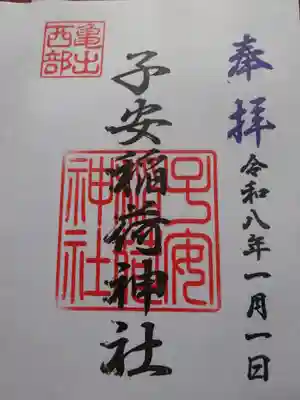 奉拝
令和八年一月一日
子安稲荷神社
亀出
西部
子安
神社